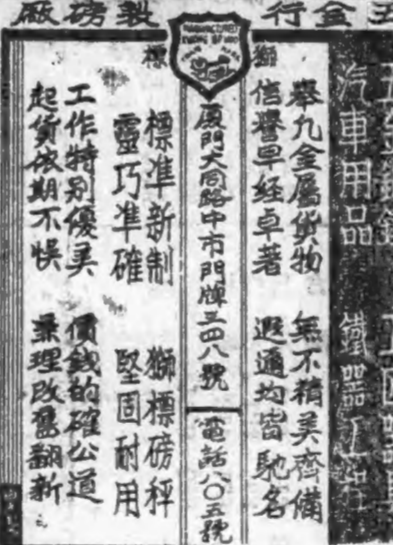 五金行
製磅廠
汽車用品
鐵器
舉凡金屬貨物 無不精美齊備
信譽早經卓著 遐邇均皆馳名
獅標
廈門大同路中市門牌三四八號
電話八〇五號
標準新制 獅標磅秤
靈巧準確 堅固耐用
工作特別優美 價錢的確公道
起貨依期不悞 兼理改舊翻新